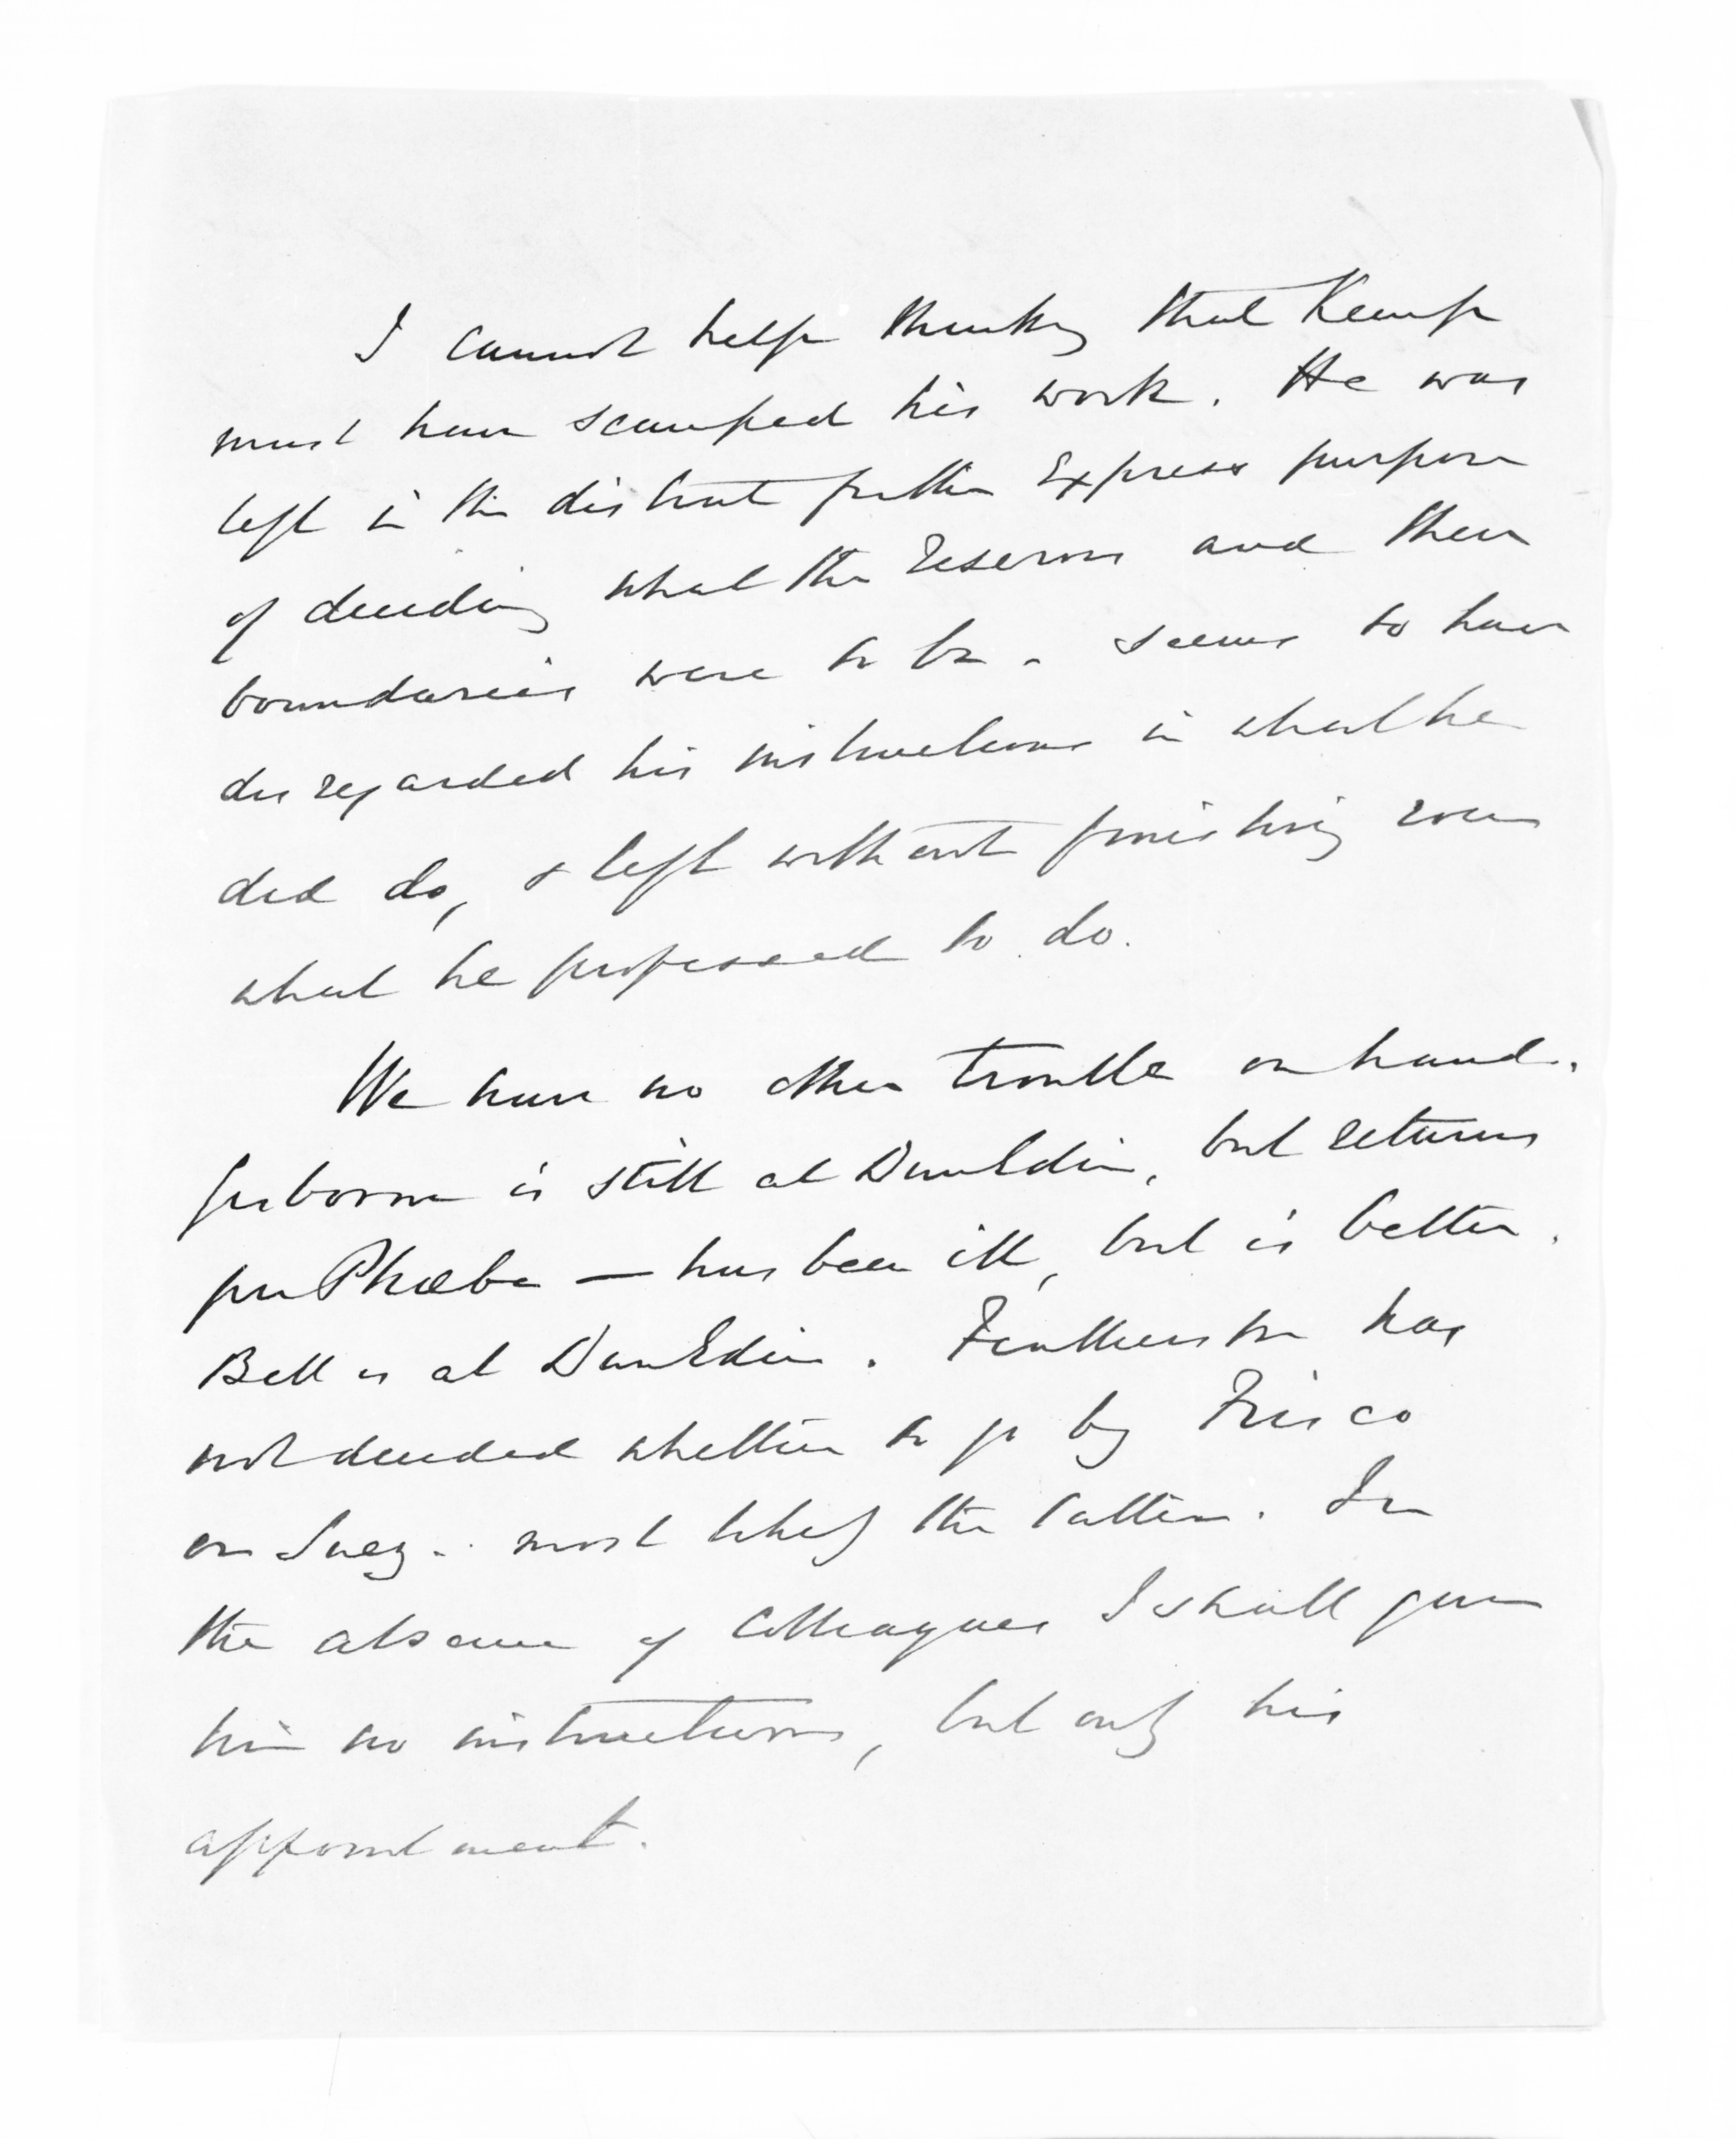 I cannot help thinking that Kemp
must have scamped his work. He was
left in the district for the express purpose
of deciding what the reserves and their
boundaries were to be - seems to have
disregarded his instructions in what he
did do, & left without finishing even
what he professed to do.
We have no other trouble on hand.
Gisborne is still at Dunedin, but returns
per Phoebe — has been ill, but is better.
Bell is at Dunedin. Featherston has
not decided whether to go by Frisco
or Suez - most likely the latter. In
the absence of Colleagues I shall give
him no instructions, but only his
appointment.